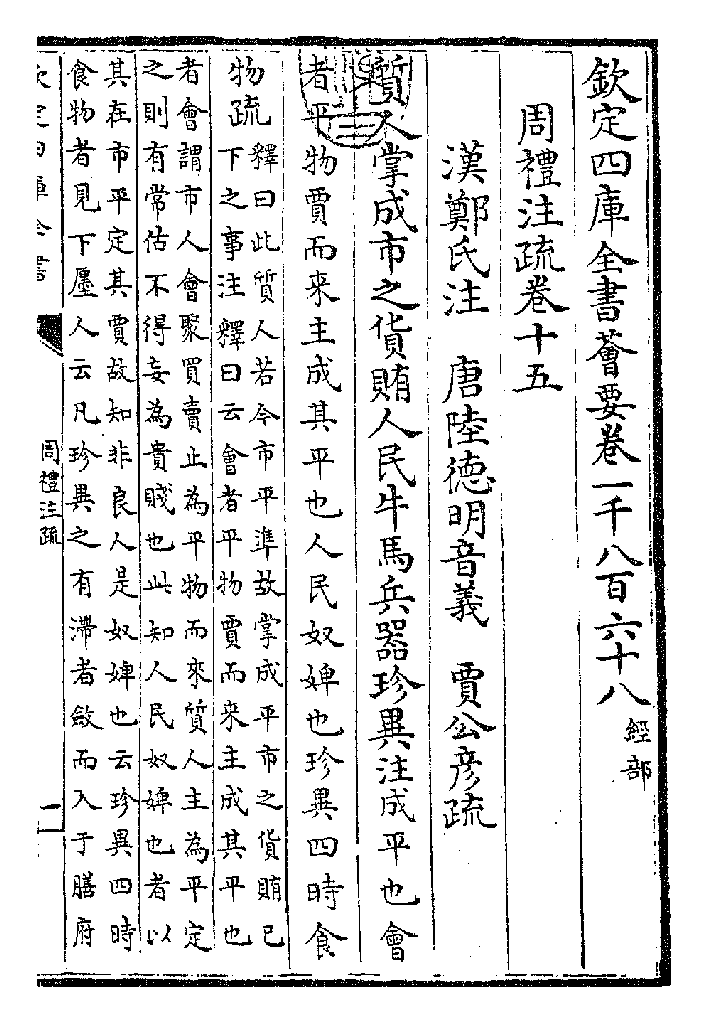 欽定四庫全書薈要卷一千八百六十八 經部
周禮注疏卷十五
漢鄭氏注 唐陸德明音義 賈公彦疏
質人掌成市之貨賄人民牛馬兵器珍異注成平也會
者平物賈而来主成其平也人民奴婢也珍異四時食
物疏
釋曰此質人若今市平準故掌成平市之貨賄已
下之事注釋曰云會者平物賈而来主成其平也
者會謂市人會聚買賣止為平物而來質人主為平定
之則有常估不得妄為貴賤也此知人民奴婢也者以
其在市平定其賈故知非良人是奴婢也云珍異四時
食物者見下廛人云凡珍異之有滯者斂而入于膳府
欽定四庫全書
周禮注疏
一